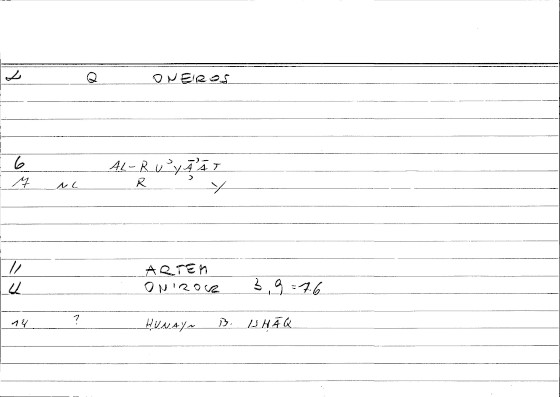 2 Q ONEIROS
6 AL-RUʾYĀʾĀT
7 NC R ʾ Y
11 ARTEM
12 ONIROCR 3,9 = 76
14 ? ḤUNAYN B. ISḤĀQ